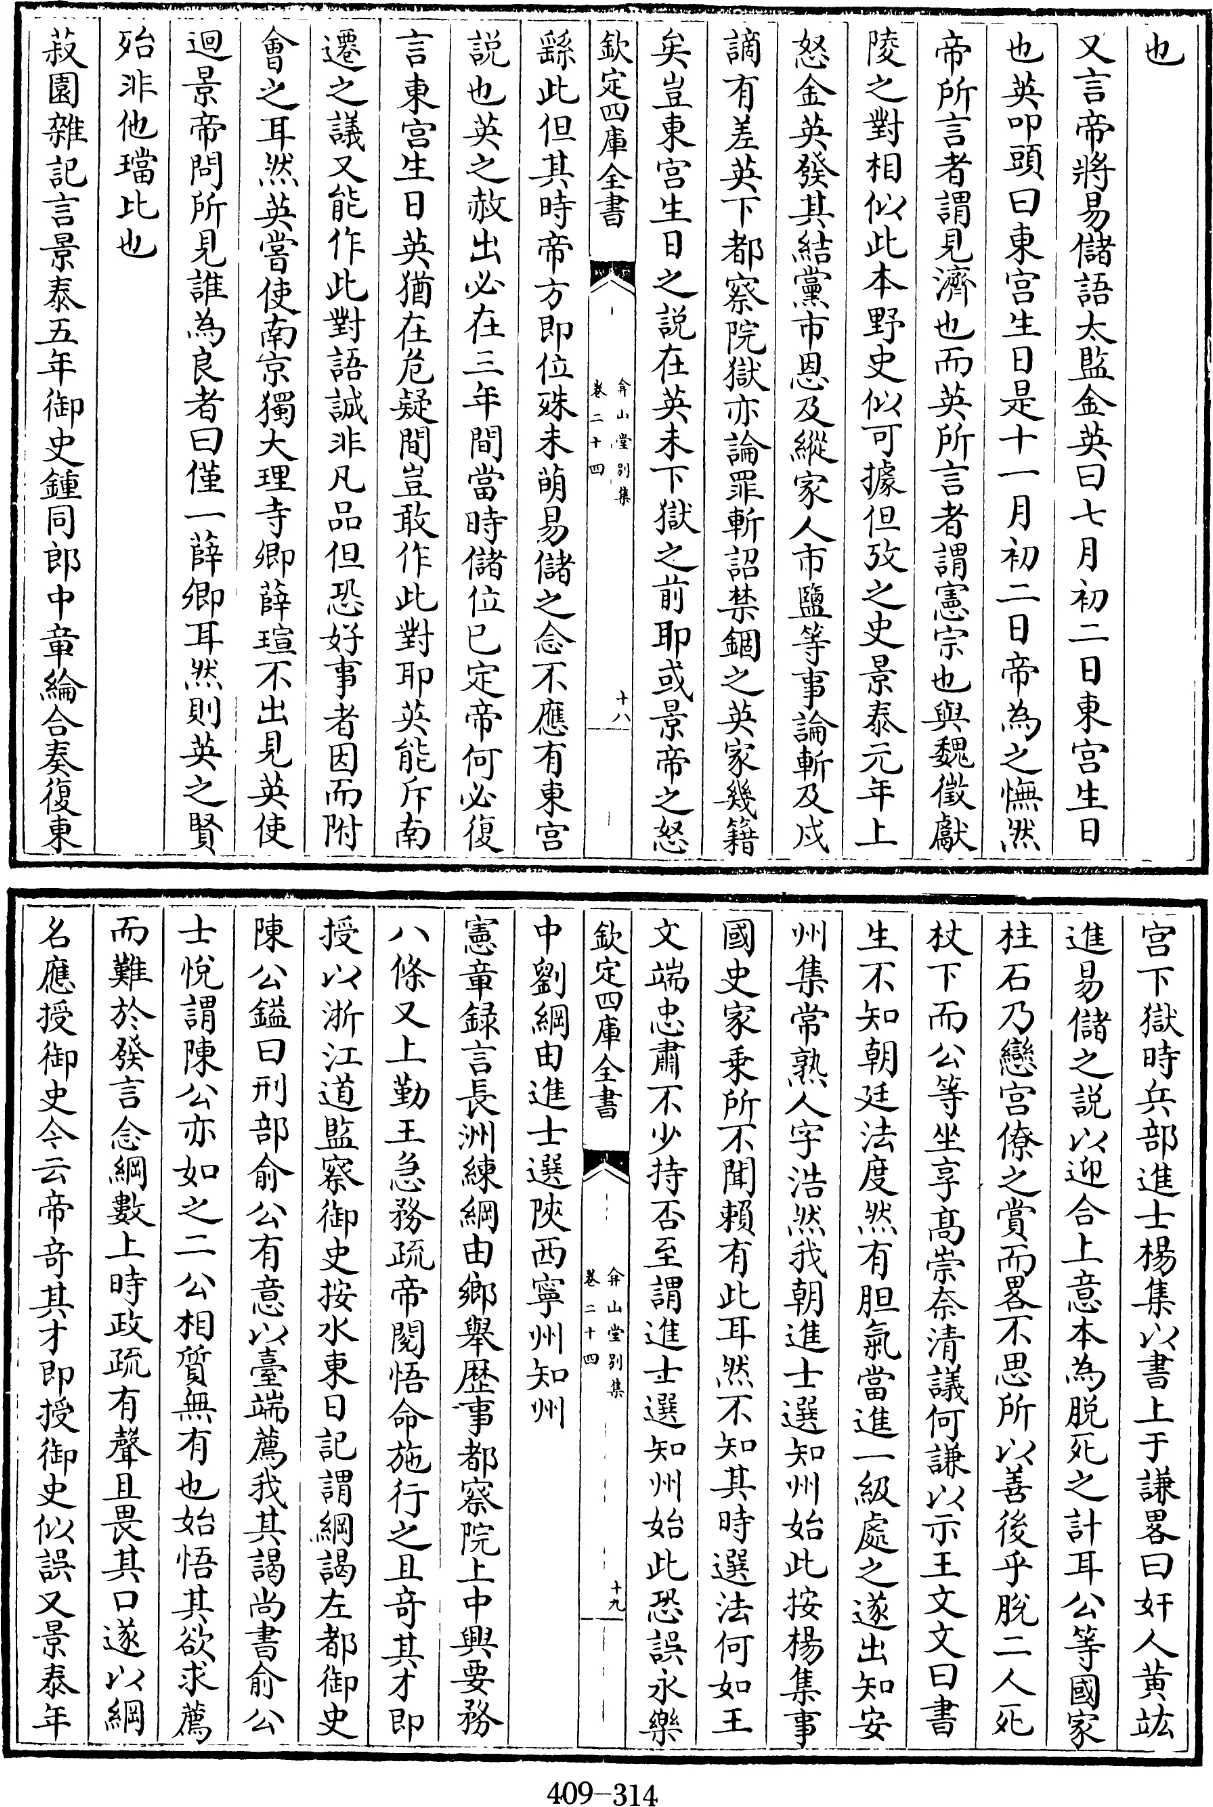 也
又言帝將易儲語太監金英曰七月初二日東宮生日
也英叩頭曰東宮生日是十一月初二日帝為之憮然
帝所言者謂見濟也而英所言者謂憲宗也與魏徵獻
陵之對相似此本野史似可據但攷之史景泰元年上
怒金英發其結黨市恩及縱家人市鹽等事論斬及戍
謫有差英下都察院獄亦論罪斬詔禁錮之英家幾籍
矣豈東宮生日之説在英未下獄之前耶或景帝之怒
欽定四庫全書
弇山堂别集
卷二十四
十八
繇此但其時帝方即位殊未萌易儲之念不應有東宮
説也英之赦出必在三年間當時儲位已定帝何必復
言東宮生日英猶在危疑間豈敢作此對耶英能斥南
遷之議又能作此對語誠非凡品但恐好事者因而附
會之耳然英嘗使南京獨大理寺卿薛瑄不出見英使
迴景帝問所見誰為良者曰僅一薛卿耳然則英之賢
殆非他璫比也
菽園雜記言景泰五年御史鍾同郎中章綸合奏復東
宮下獄時兵部進士楊集以書上于謙畧曰奸人黄竑
進易儲之説以迎合上意本為脱死之計耳公等國家
柱石乃戀宮僚之賞而畧不思所以善後乎脱二人死
杖下而公等坐享髙崇奈清議何謙以示王文文曰書
生不知朝廷法度然有胆氣當進一級處之遂出知安
州集常熟人字浩然我朝進士選知州始此按楊集事
國史家乗所不聞賴有此耳然不知其時選法何如王
文端忠肅不少持否至謂進士選知州始此恐誤永樂
欽定四庫全書
弇山堂别集
卷二十四
十九
中劉綱由進士選陜西寧州知州
憲章録言長洲練綱由鄉舉歴事都察院上中興要務
八條又上勤王急務疏帝閱悟命施行之且竒其才即
授以浙江道監察御史按水東日記謂綱謁左都御史
陳公鎰曰刑部俞公有意以臺端薦我其謁尚書俞公
士悅謂陳公亦如之二公相質無有也始悟其欲求薦
而難於發言念綱數上時政疏有聲且畏其口遂以綱
名應授御史今云帝竒其才即授御史似誤又景泰年
409-314